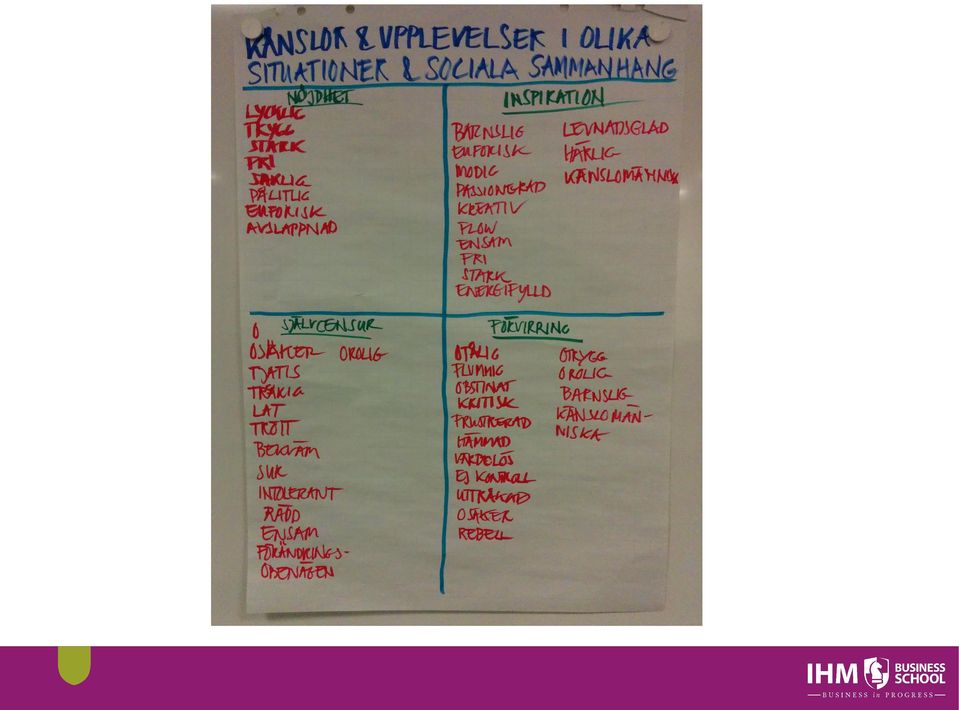 KÄNSLOR & UPPLEVELSER I OLIKA
SITUATIONER & SOCIALA SAMMANHANG
NÖJDHET
LYCKLIG
TRYGG
STARK
FRI
SAKLIG
PÅLITLIG
EUFORISK
AVSLAPPNAD
INSPIRATION
BARNSLIG
EUFORISK
MODIG
PASSIONERAD
KREATIV
FLOW
ENSAM
FRI
STARK
ENERGIFYLLD
LEVNADSGLAD
HÄRLIG
KÄNSLOMÄNNISK
SJÄLVCENSUR
O
OSÄKER OROLIG
TJATIG
TRÅKIG
LAT
TRÖTT
BEKVÄM
SUR
INTOLERANT
RÄDD
ENSAM
FÖRÄNDRINGS-
OBENÄGEN
FÖRVIRRING
OTÅLIG
FLUMMIG
OBSTINAT
KRITISK
FRUSTRERAD
HÄMMAD
VÄRDELÖS
EJ KONTROLL
UTTRÅKAD
OSÄKER
REBELL
OTRYGG
OROLIG
BARNSLIG
KÄNSLOMÄN-
NISKA
IHM BUSINESS SCHOOL
BUSINESS in PROGRESS